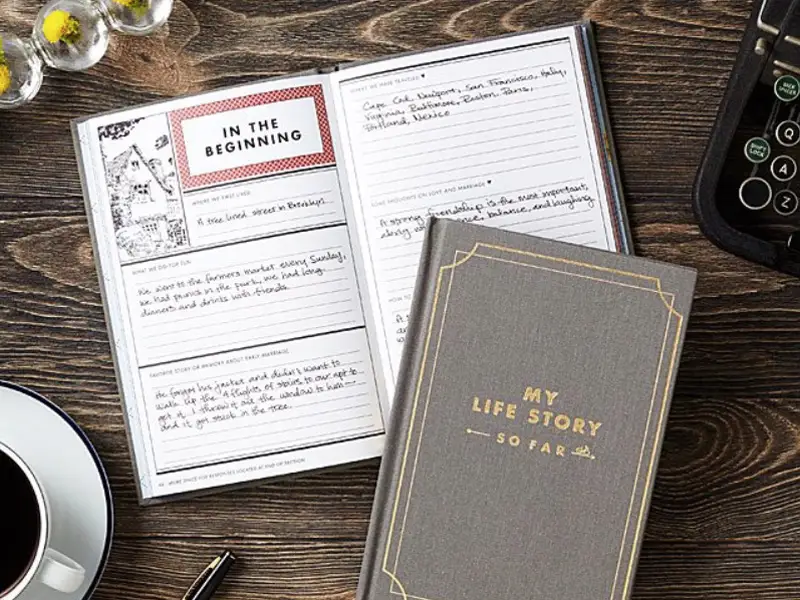 IN THE
BEGINNING
WHERE WE FIRST LIVED
A tree lined street in Brooklyn.
WHAT WE DID FOR FUN
We went to the farmers market every Sunday,
we had picnics in the park, we had long
dinners and drinks with friends.
FAVORITE STORY OR MEMORY ABOUT EARLY MARRIAGE
He forgot his jacket and didn't want to
walk up the 4 flights of stairs to our apt to
get it. I threw it out the window to him —
and it got stuck in the tree.
MORE SPACE FOR RESPONSES LOCATED AT END OF SECTION
WHERE WE HAVE TRAVELED ♥
Cape Cod, Newport, San Francisco, Italy,
Virginia, Baltimore, Boston, Paris,
Portland, Mexico
SOME THOUGHTS ON LOVE AND MARRIAGE ♥
A strong friendship is the most important,
balance, and laughing.
HOW
MY
LIFE STORY
SO FAR
BACK
SPACER
SHIFT
LOCK
Q
A
Z